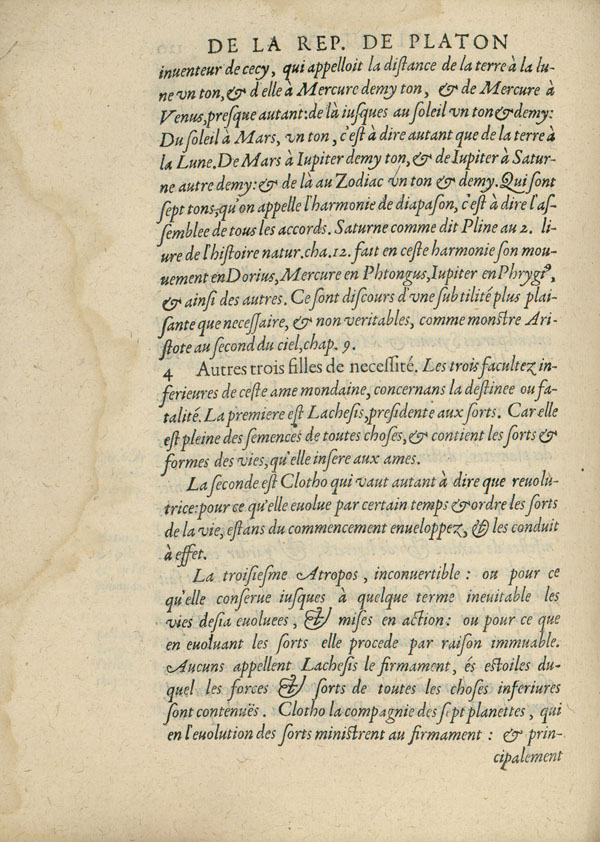 DE LA REP. DE PLATON
inuenteur de cecy, qui appelloit la distance de la terre à la lu-
ne vn ton, & d'elle à Mercure demy ton, & de Mercure à
Venus, presque autant: de là iusques au soleil vn ton & demy:
Du soleil à Mars, vn ton, c'est à dire autant que de la terre à
la Lune. De Mars à Iupiter demy ton, & de Iupiter à Satur-
ne autre demy: & de là au Zodiac vn ton & demy. Qui sont
sept tons, qu'on appelle l'harmonie de diapason, c'est à dire l'as-
semblee de tous les accords. Saturne comme dit Pline au 2. li-
ure de l'histoire natur. cha. 12. fait en ceste harmonie son mou-
uement en Dorius, Mercure en Phtongus, Iupiter en Phrygiꝰ,
& ainsi des autres. Ce sont discours d'vne subtilité plus plai-
sante que necessaire, & non veritables, comme monstre Ari-
stote au second du ciel, chap. 9.
4 Autres trois filles de necessité. Les trois facultez in-
ferieures de ceste ame mondaine, concernans la destinee ou fa-
talité. La premiere est Lachesis, presidente aux sorts. Car elle
est pleine des semences de toutes choses, & contient les sorts &
formes des vies, qu'elle insere aux ames.
La seconde est Clotho qui vaut autant à dire que reuolu-
trice: pour ce qu'elle euolue par certain temps & ordre les sorts
de la vie, estans du commencement enueloppez, & les conduit
à effet.
La troisiesme Atropos, inconuertible : ou pour ce
qu'elle conserue iusques à quelque terme ineuitable les
vies desia euoluees, & mises en action: ou pour ce que
en euoluant les sorts elle procede par raison immuable.
Aucuns appellent Lachesis le firmament, és estoiles du-
quel les forces & sorts de toutes les choses inferiures
sont contenuës. Clotho la compagnie des sept planettes, qui
en l'euolution des sorts ministrent au firmament : & prin-
cipalement